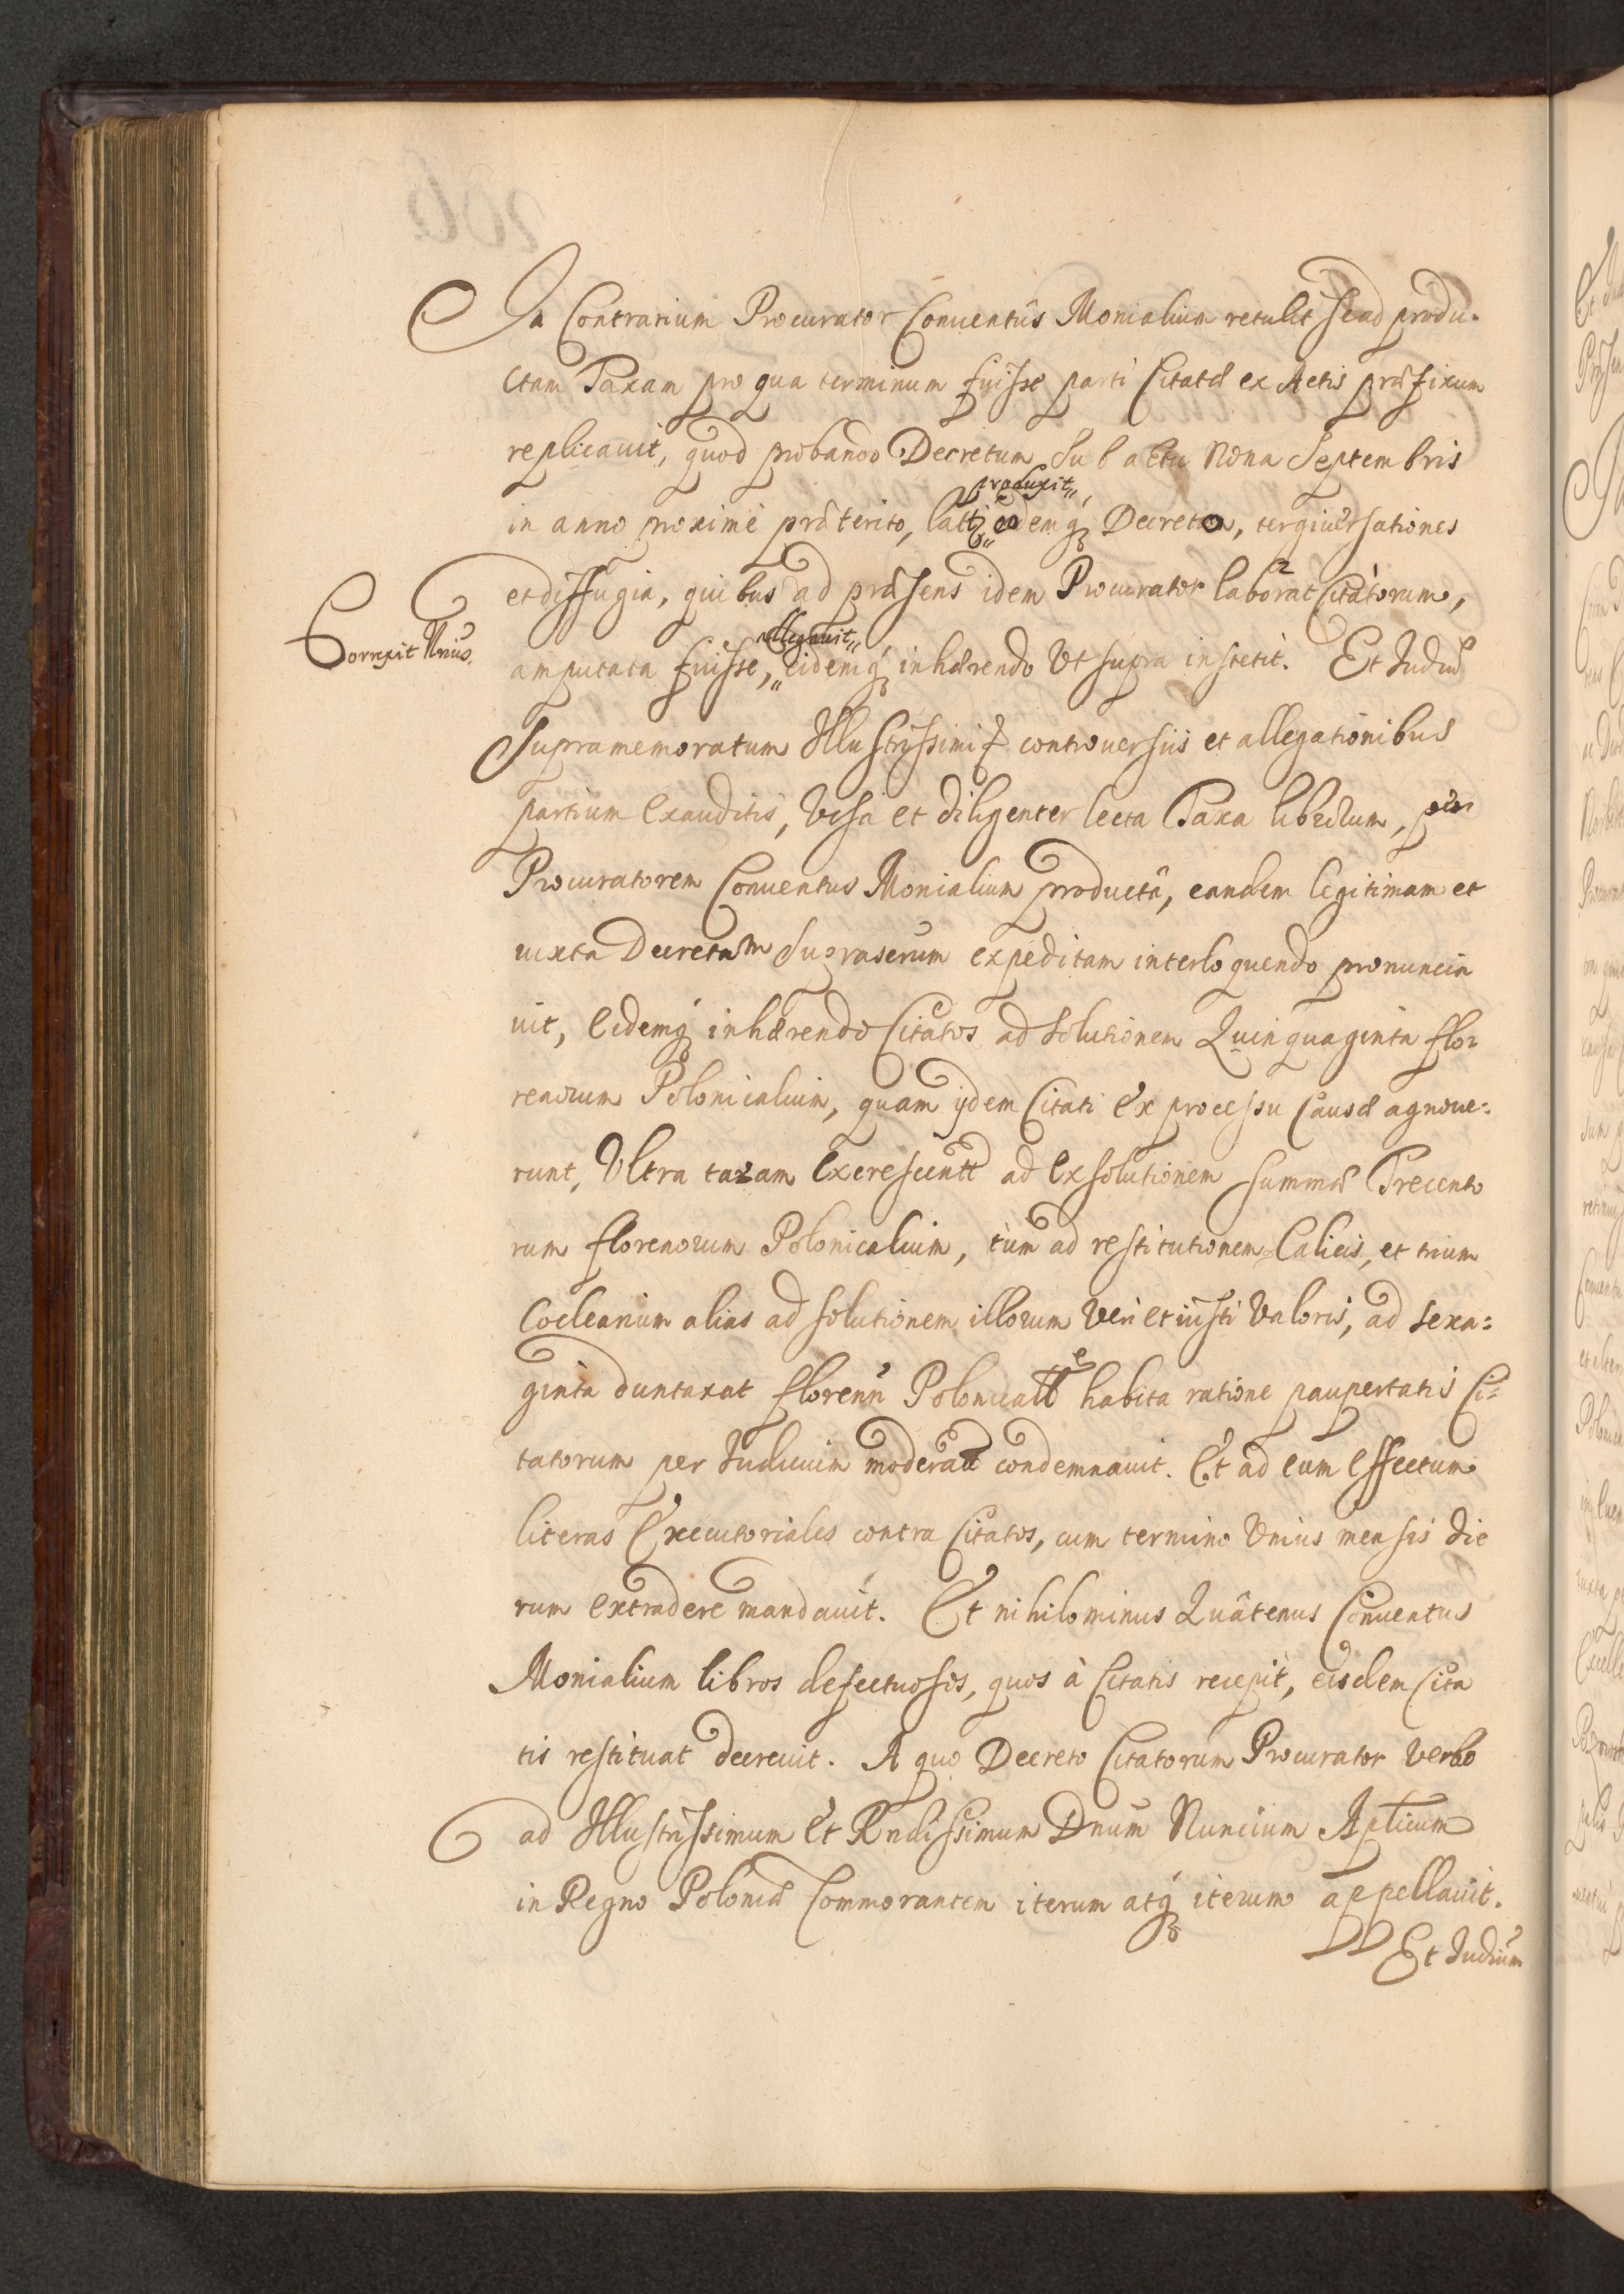 In Contrarium Procurator Conuentûs Monialium retulit se ad produ-
ctam Taxam pro qua terminum fuisse parti Citatæ ex Actis præfixum
replicauit, quod probando Decretum sub actu Nona Septembris
produxit,,
in anno proximè præterito, latt „ eodemq Decreto, tergiuersationes
et diffugia, quibus ad præsens idem Procurator laborat Citatorum,
Correxit Unius.
allegauit,,
amputata fuisse, „ eidemq inhærendo Vt supra institit. Et Judiū
Supramemoratum Illustrissimi controuersiis et allegationibus
partium Exauditis, Visa et diligenter lecta Taxa librorum, per
Procuratorem Conuentus Monialium productâ, eandem legitimam et
iuxta Decretum suprascrum expeditam interloquendo pronuncia
uit, Eidemq inhærendo Citatos ad solutionem Quinquaginta flo-
renorum Polonicalium, quam ijdem Citati Ex processu Causæ agnoue-
runt, Vltra taxam Excrescentt ad Exsolutionem summæ Trecento
rum florenorum Polonicalium, tum ad restitutionem Calicis, et trium
Coclearium alias ad solutionem illorum Veri et iusti Valoris, ad sexa=
ginta duntaxat floren̄ Polonicall habita ratione paupertatis Ci=
tatorum per Judicium moderatt condemnauit. Et ad eum Effectum
literas Executoriales contra Citatos, cum termino Vnius mensis die
rum extradere mandauit. Et nihilominus Quâtenus Conuentus
Monialium libros defectuosos, quos à Citatis recepit, eisdem Cita
tis restituat decreuit. A quo Decreto Citatorum Procurator Verbo
ad Illustrissimum Et Rndissimum Dnum Nuncium Aplicum
in Regno Poloniæ Commorantem iterum atq iterum appellauit.
Et Judium